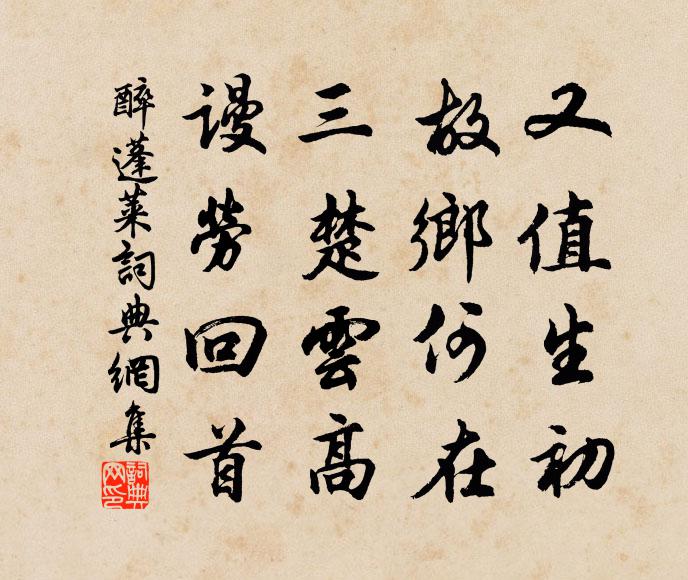 又值生初
故鄉何在
三楚雲高
謾勞回首
醉蓬萊詞典網集
詞典網印